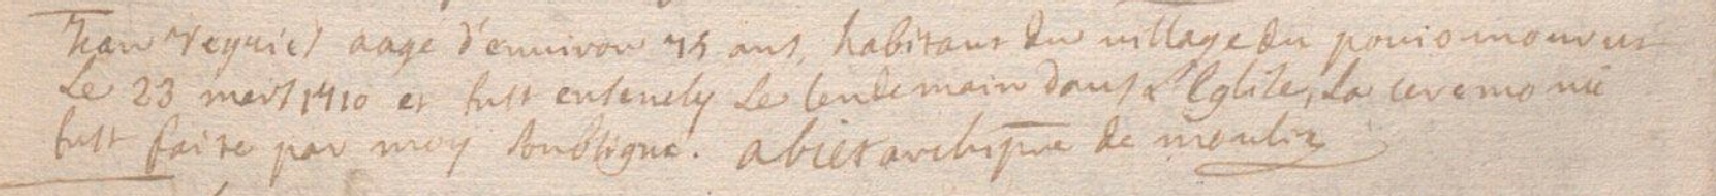 Jean Veyriés aagé d'environ 75 ans, habitant du village du pouio mourut
Le 23 mars 1710 et fust ensevely Le lendemain dans L'Eglise, La ceremonie
fust faite par moy soubsigné. abiet archiptre de moulin